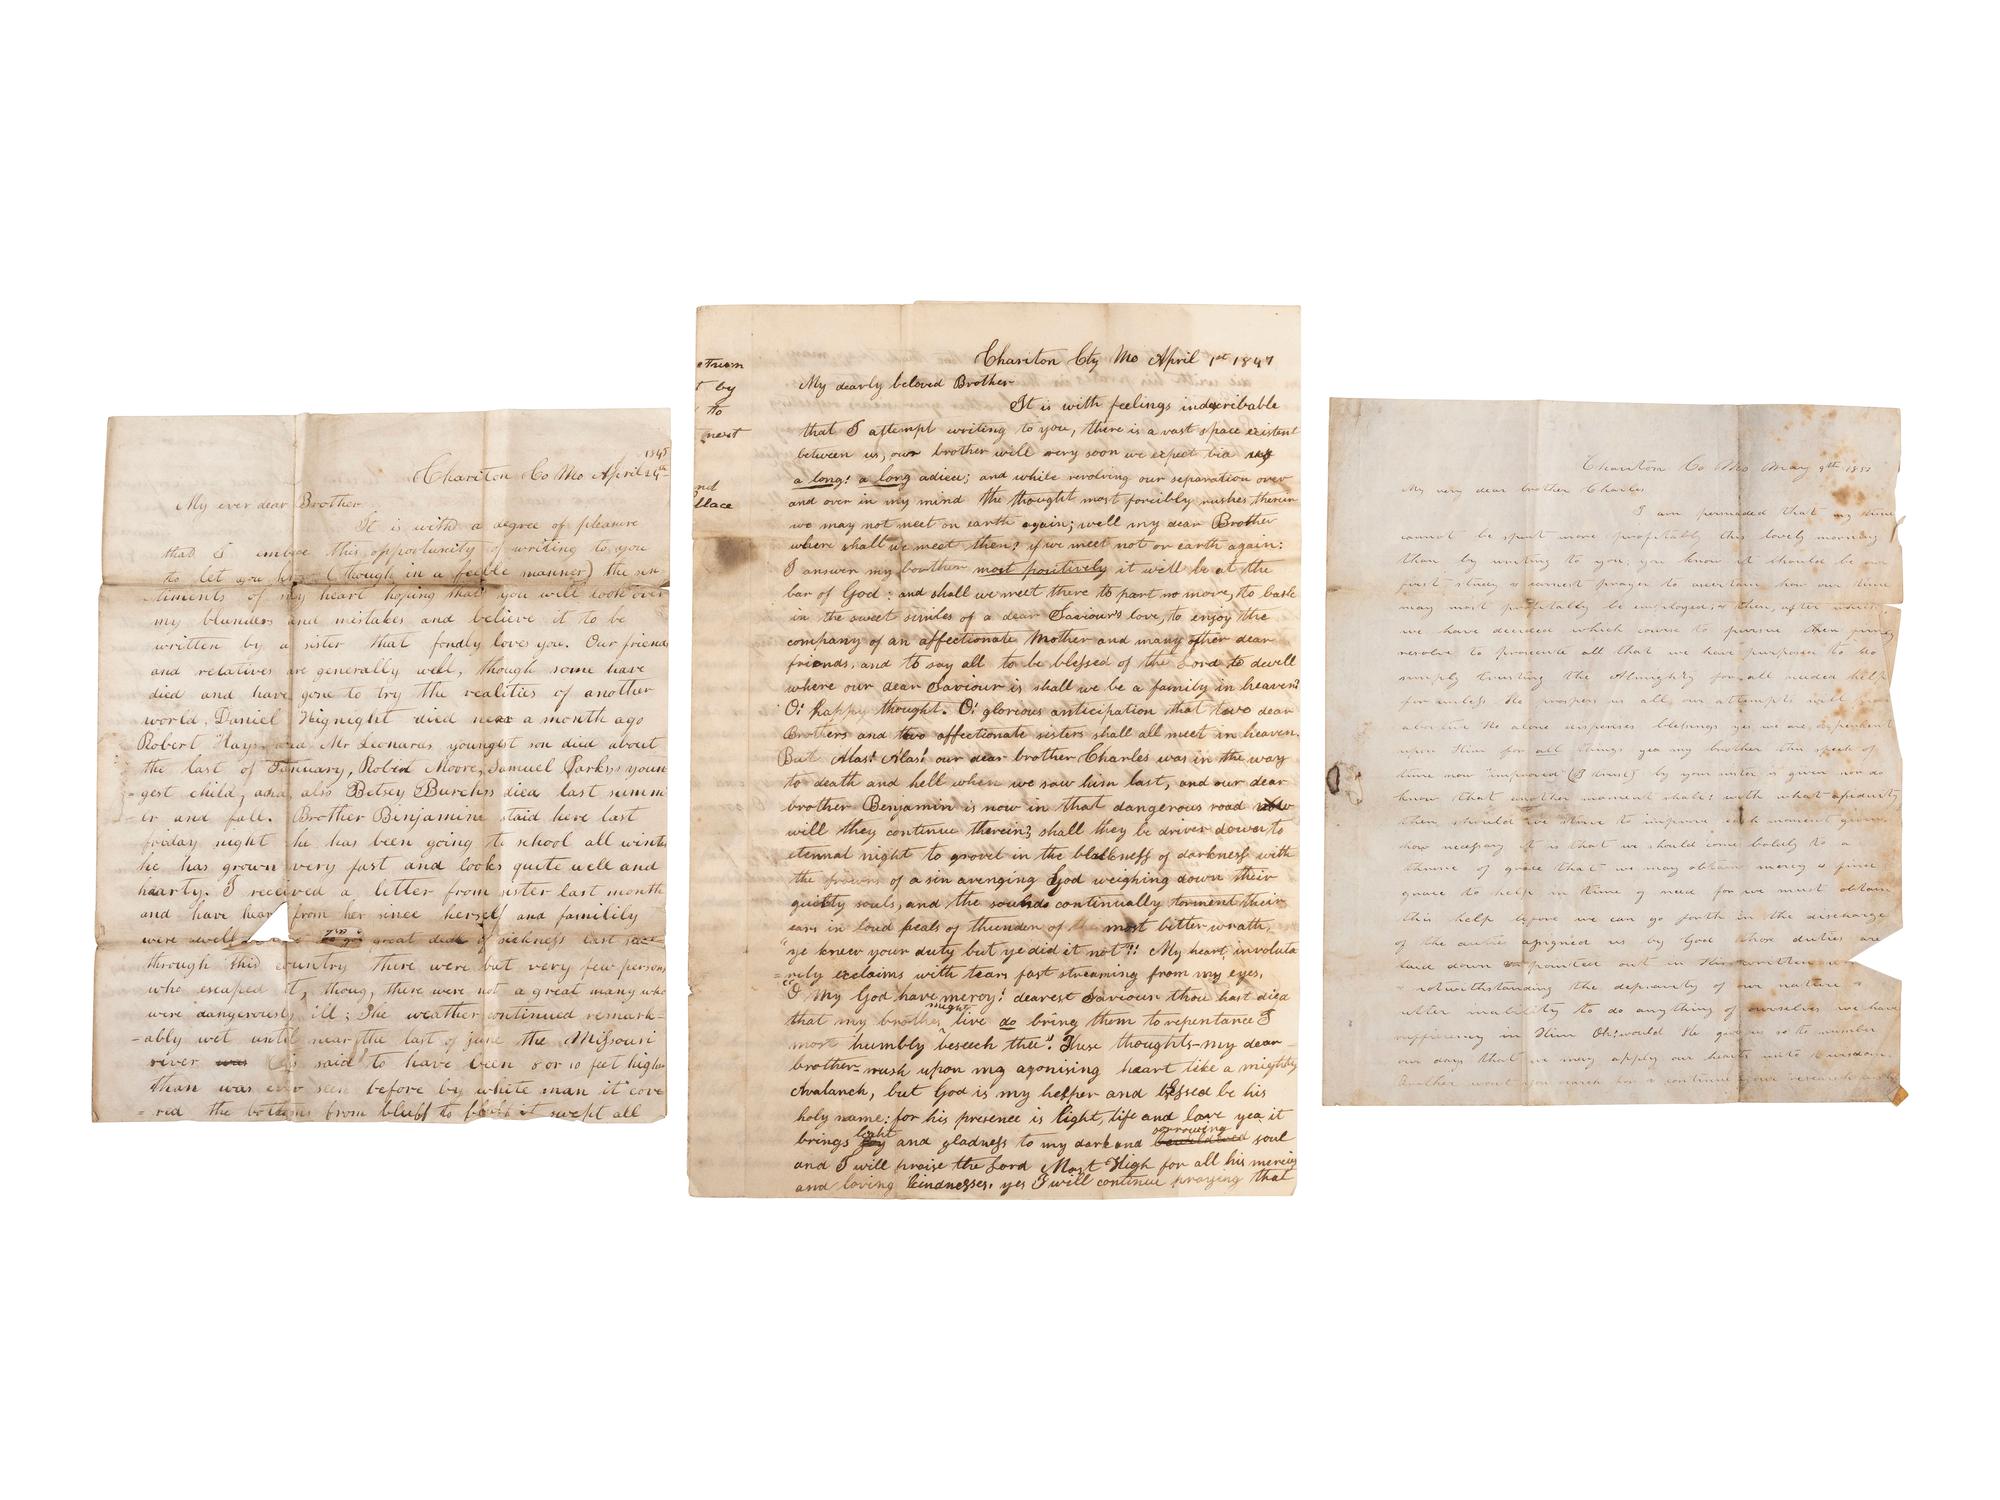 1845
Chariton Co Mo April 24th
My ever dear Brother
It is with a degree of pleasure
that I embrace this opportunity of writing to you
to let you (though in a feeble manner) the sen-
timents of my heart hoping that you will look over
my blunders and mistakes and believe it to be
written by a sister that fondly loves you. Our friends
and relatives are generally well, though some have
died and have gone to try the realities of another
world, Daniel Hignight died near a month ago
Robert Hays and Mr Leonards youngest son died about
the last of January, Robert Moore, Samuel Parkss youn
=gest child, and, also Betsey Burchss died last summ
er and fall. Brother Benjamine staid here last
friday night he has been going to school all winter
he has grown very fast and looks quite well and
hearty. I received a letter from sister last month
and have hear from her since herself and familily
were well great deal of sickness last
through this country there were but very few persons
who escaped it, thoug, there were not a great many who
were dangerously ill; The weather continued remark-
=ably wet until near the last of june the Missouri
river was is said to have been 8 or 10 feet higher
than was ever seen before by white man it cove
=red the bottoms from bluff to bluff it swept all
t by
to
next
nd
llace
Chariton Cty Mo April 1st 1847
My dearly beloved Brother
It is with feelings indescribable
that I attempt writing to you, there is a vast space existent
between us, our brother will very soon we expect bid us
a long! a long adieu; and while revolving our separation over
and over in my mind the thought most forcibly rushes therein
we may not meet on earth again; well my dear Brother
where shall we meet then? if we meet not on earth again:
I answer my brother most positively it will be at the
bar of God: and shall we meet there to part no more, to bask
in the sweet smiles of a dear Saviour's love, to enjoy the
company of an affectionate Mother and many other dear
friends, and to say all to be blessed of the Lord to dwell
where our dear Saviour is shall we be a family in heaven?
O! happy thought. O! glorious anticipation that two dear
Brothers and two affectionate sisters shall all meet in heaven.
But Alas! Alas! our dear brother Charles was in the way
to death and hell when we saw him last, and our dear
brother Benjamin is now in that dangerous road now
will they continue therein? shall they be driven down to
eternal night to grovel in the blackness of darkness with
the frowns of a sin avenging God weighing down their
guilty souls, and the sounds continually torment their
ears in loud peals of thunder of the most bitter wrath,
"ye knew your duty but ye did it not"!! My heart, involuta
=rily exclaims with tears fast streaming from my eyes,
"O My God have mercy! dearest Saviour thou hast died
that my brothers might live do bring them to repentance I
most humbly beseech thee"! These thoughts my dear
brother rush upon my agonising heart like a mighty
Avalanch, but God is my helper and blessed be his
holy name: for his presence is light, life and love yea it
brings light joy and gladness to my dark and sorrowing bewildered soul
and I will praise the Lord Most High for all his mercies
and loving kindnesses, yes I will continue praying that
Chariton Co Mo May 9th 1852
My very dear brother Charles
I am persuaded that my time
cannot be spent more profitably this lovely morning
than by writing to you; you know it should be our
first study & earnest prayer to ascertain how our time
may most profitably be employed, & then, after which
we have decided which course to pursue then
resolve to prosecute all that we have purposed to do
simply trusting the Almighty for all needed help
for unless He prospers us all our attempts will prove
abortive He alone dispenses blessings yes we are dependent
upon Him for all things yea my brother this speck of
time now "improved" (I trust) by your sister is given nor do
know that another moment shall: with what assiduity
then should we strive to improve each moment given
how necessary it is that we should come boldly to a
throne of grace that we may obtain mercy & find
grace to help in time of need for we must obtain
this help before we can go forth in the discharge
of the duties assigned us by God whose duties are
laid down or pointed out in His written
& notwithstanding the depravity of our nature &
utter inability to do anything of ourselves we have
sufficiency in Him Oh! would He give us so to number
our days that we may apply our hearts unto wisdom.
Brother wont you search for & continue your research